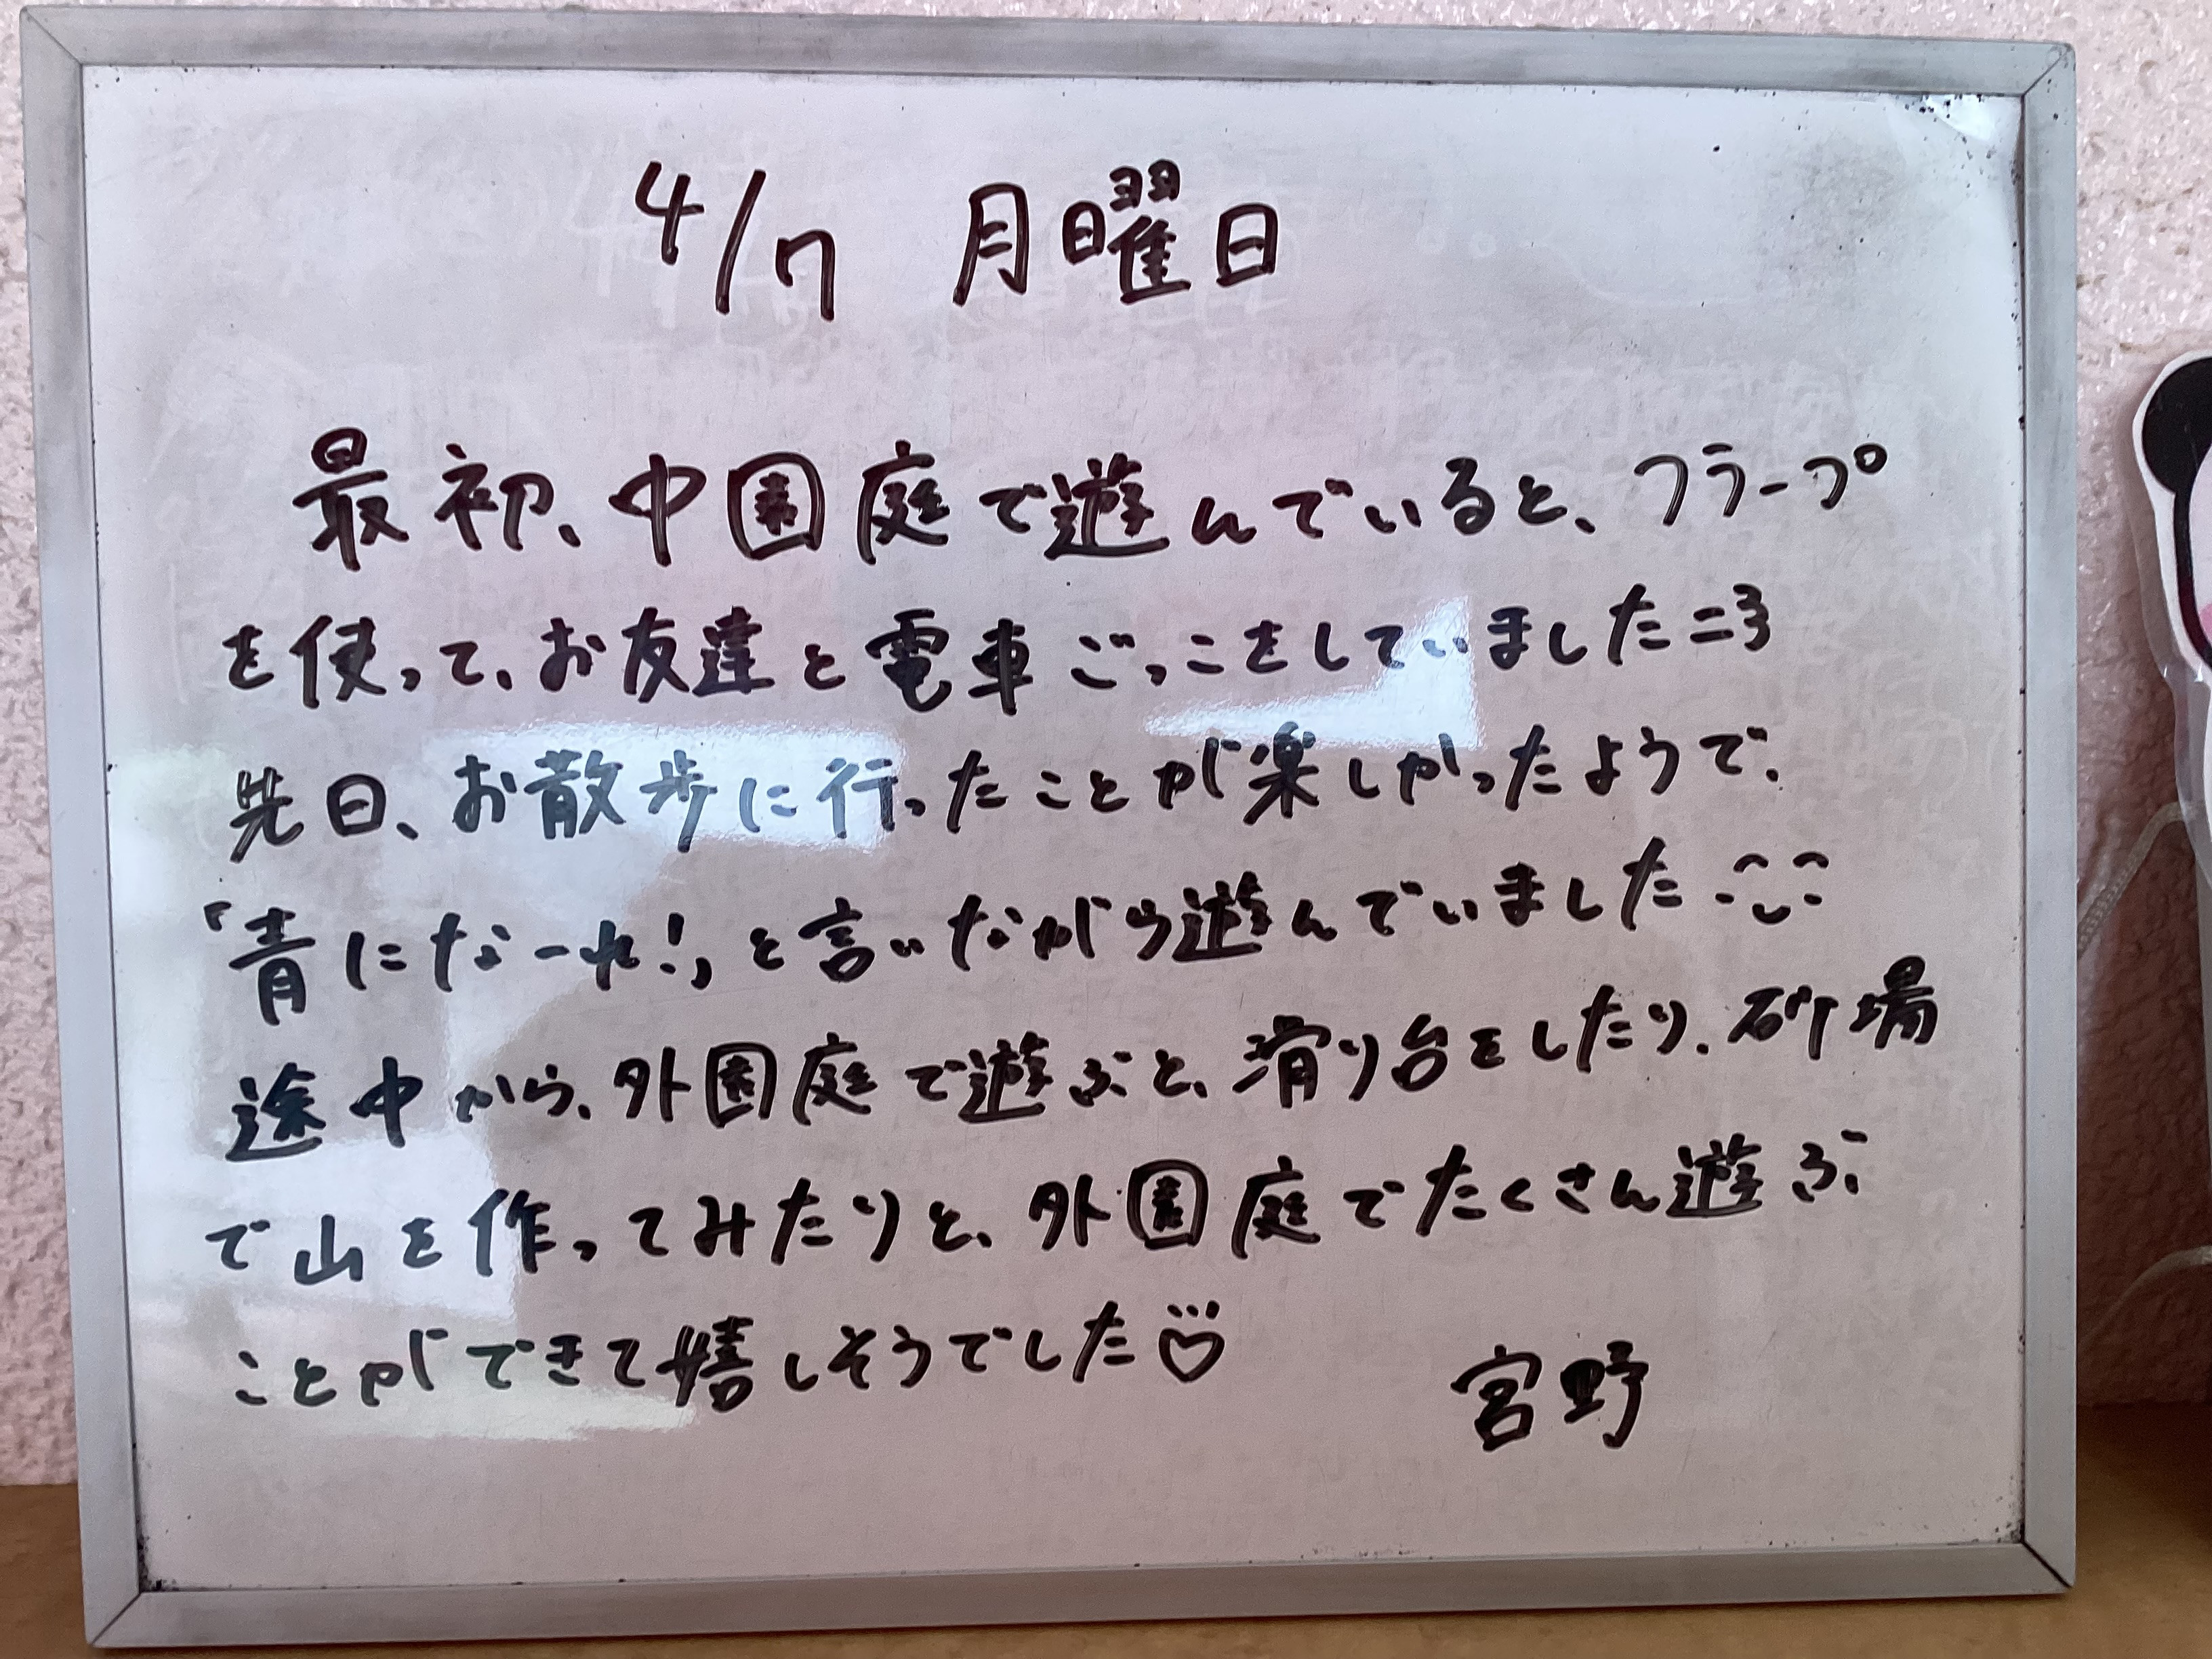 4/7 月曜日
最初、中園庭で遊んでいると、フラープ
を使って、お友達と電車ごっこをしていました=3
先日、お散歩に行ったことが楽しかったようで、
「青になーれ!」と言いながら遊んでいました
途中から、外園庭で遊ぶと、滑り台をしたり、砂場
で山を作ってみたりと、外園庭でたくさん遊ぶ
ことができて嬉しそうでした♡
宮野